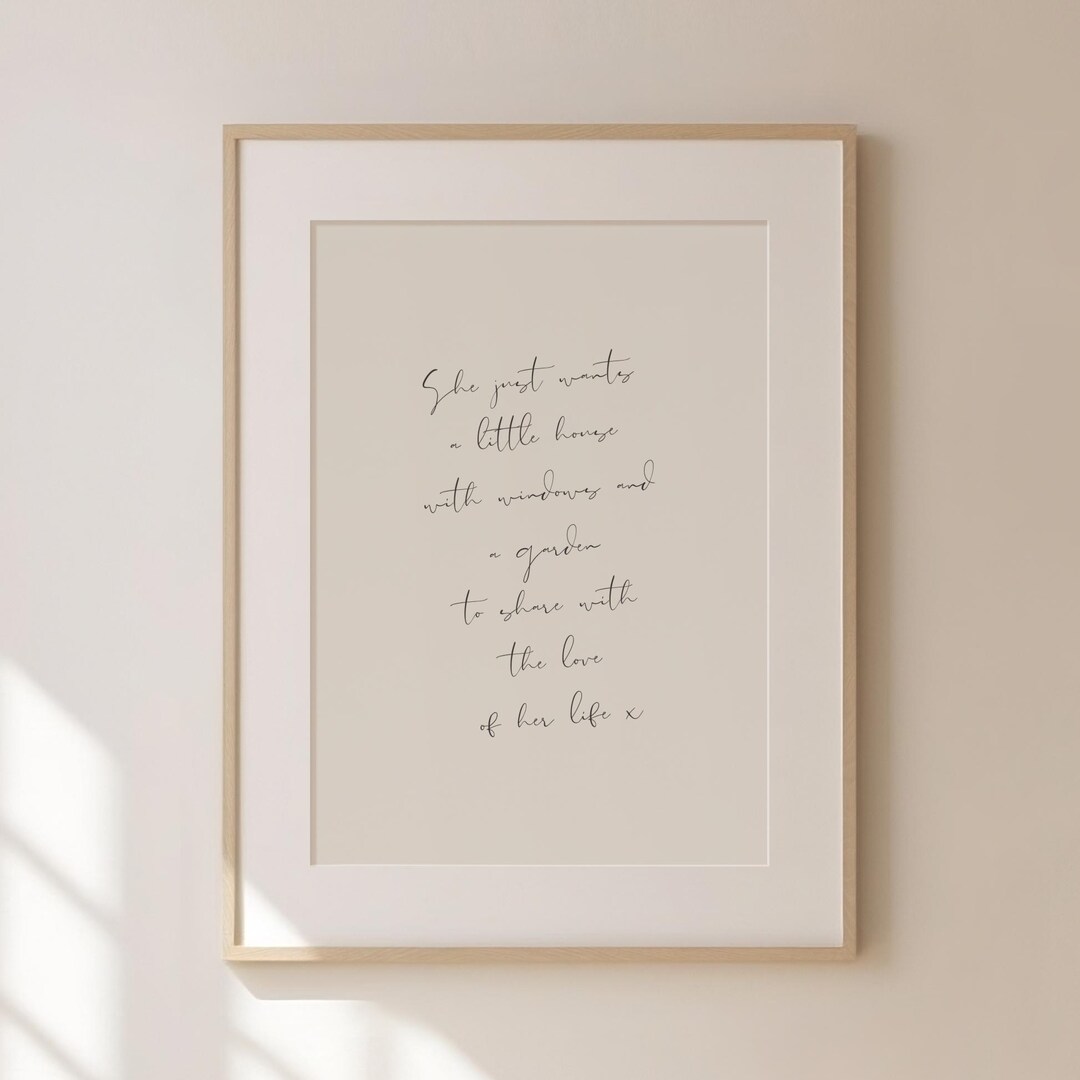 She just wants
a little house
with windows and
a garden
to share with
the love
of her life x